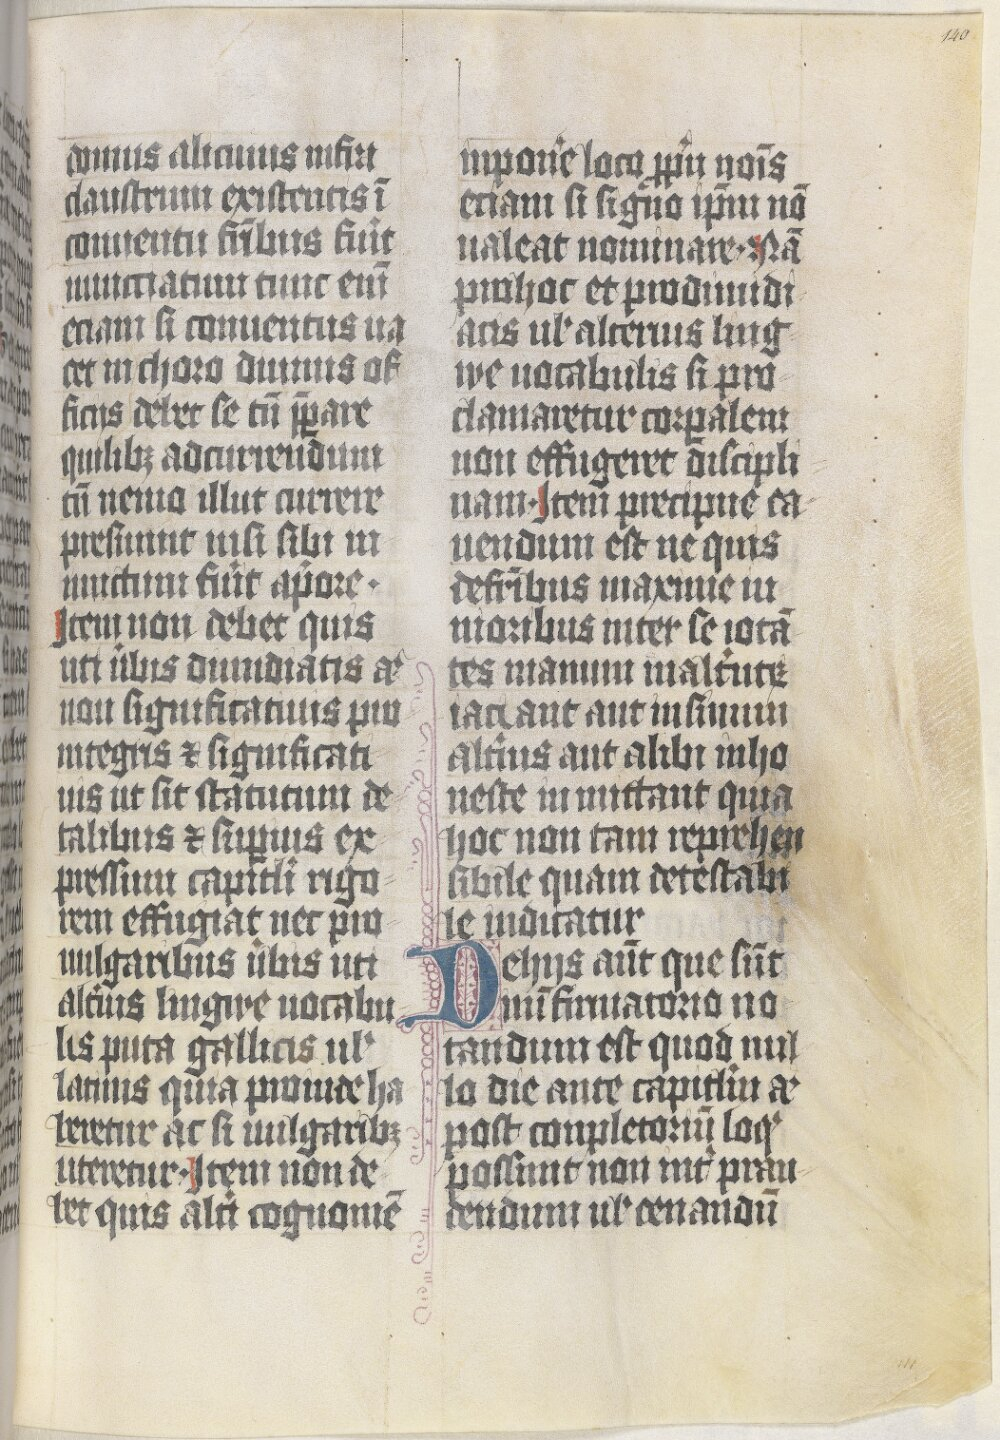 140
domus alicuius infra
claustrum existentis ī
conuentu fr̄ibus fu͛it
nunciatum tunc enī
eciam si conuentus ua
cet in choro diuinis of
ficijs debet se tn̄ p̱pare
quilibꝫ ad currendum
tn̄ nemo illuc currere
presumat nisi sibi in
iunctum fu͛it a p̄ore·
Item non debet quis
uti u͛bis dimidiatis ac
non significatiuis pro
integris ⁊ significati
uis ut sit statutum de
talibus ⁊ suꝑius ex
pressum capitl̄i rigo
rem effugiat nec pro
uulgaribus u͛bis uti
alt͛ius lingwe uocabu
lis puta gallicis ul̓
latinis quia proinde ha
beretur ac si uulgaribꝫ
uteretur· Item non de
bet quis alt͛i cognomē
inpon͛e loco ꝓp̄ii nōis
eciam si signo ip̄m nō
ualeat nominare· Nā
pro hoc et pro dimidi
atis ul̓ alterius ling
we uocabulis si pro
clamaretur corꝑalem
non effugeret discipli
nam· Item precipue ca
uendum est ne quis
de fr̄ibus maxime iu
nioribus inter se iocā
tes manum in alt͛ut͛
iaciant aut in sinum
alt͛ius aut alibi inho
neste inmittant quia
hoc non tam reprehen
sibile quam detestabi
le iudicatur
De hijs aūt que sūt
in īfirmatorio no
tandum est quod nul
lo die ante capitl̄m ac
post conpletoriū loq̓
possunt non int͛ pran
dendum ul̓ cenandū